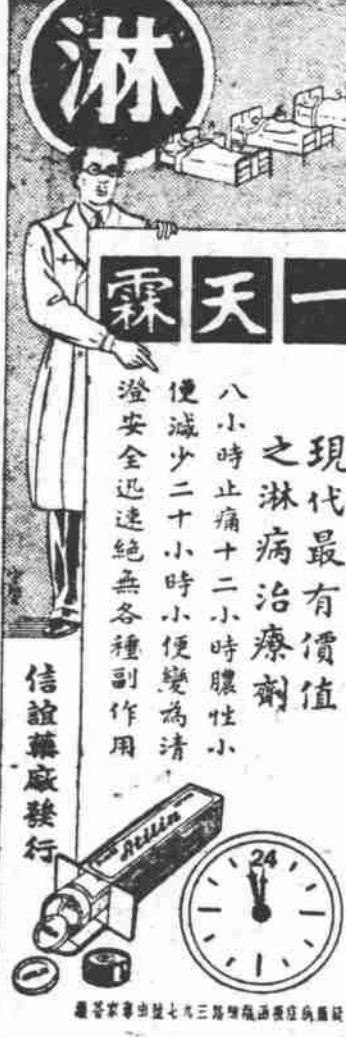 淋
一天霖
現代最有價值
之淋病治療劑
八小時止痛十二小時膿性小
便減少二十小時小便變為清
澄安全迅速絕無各種副作用
信誼藥廠發行
Atilin
24